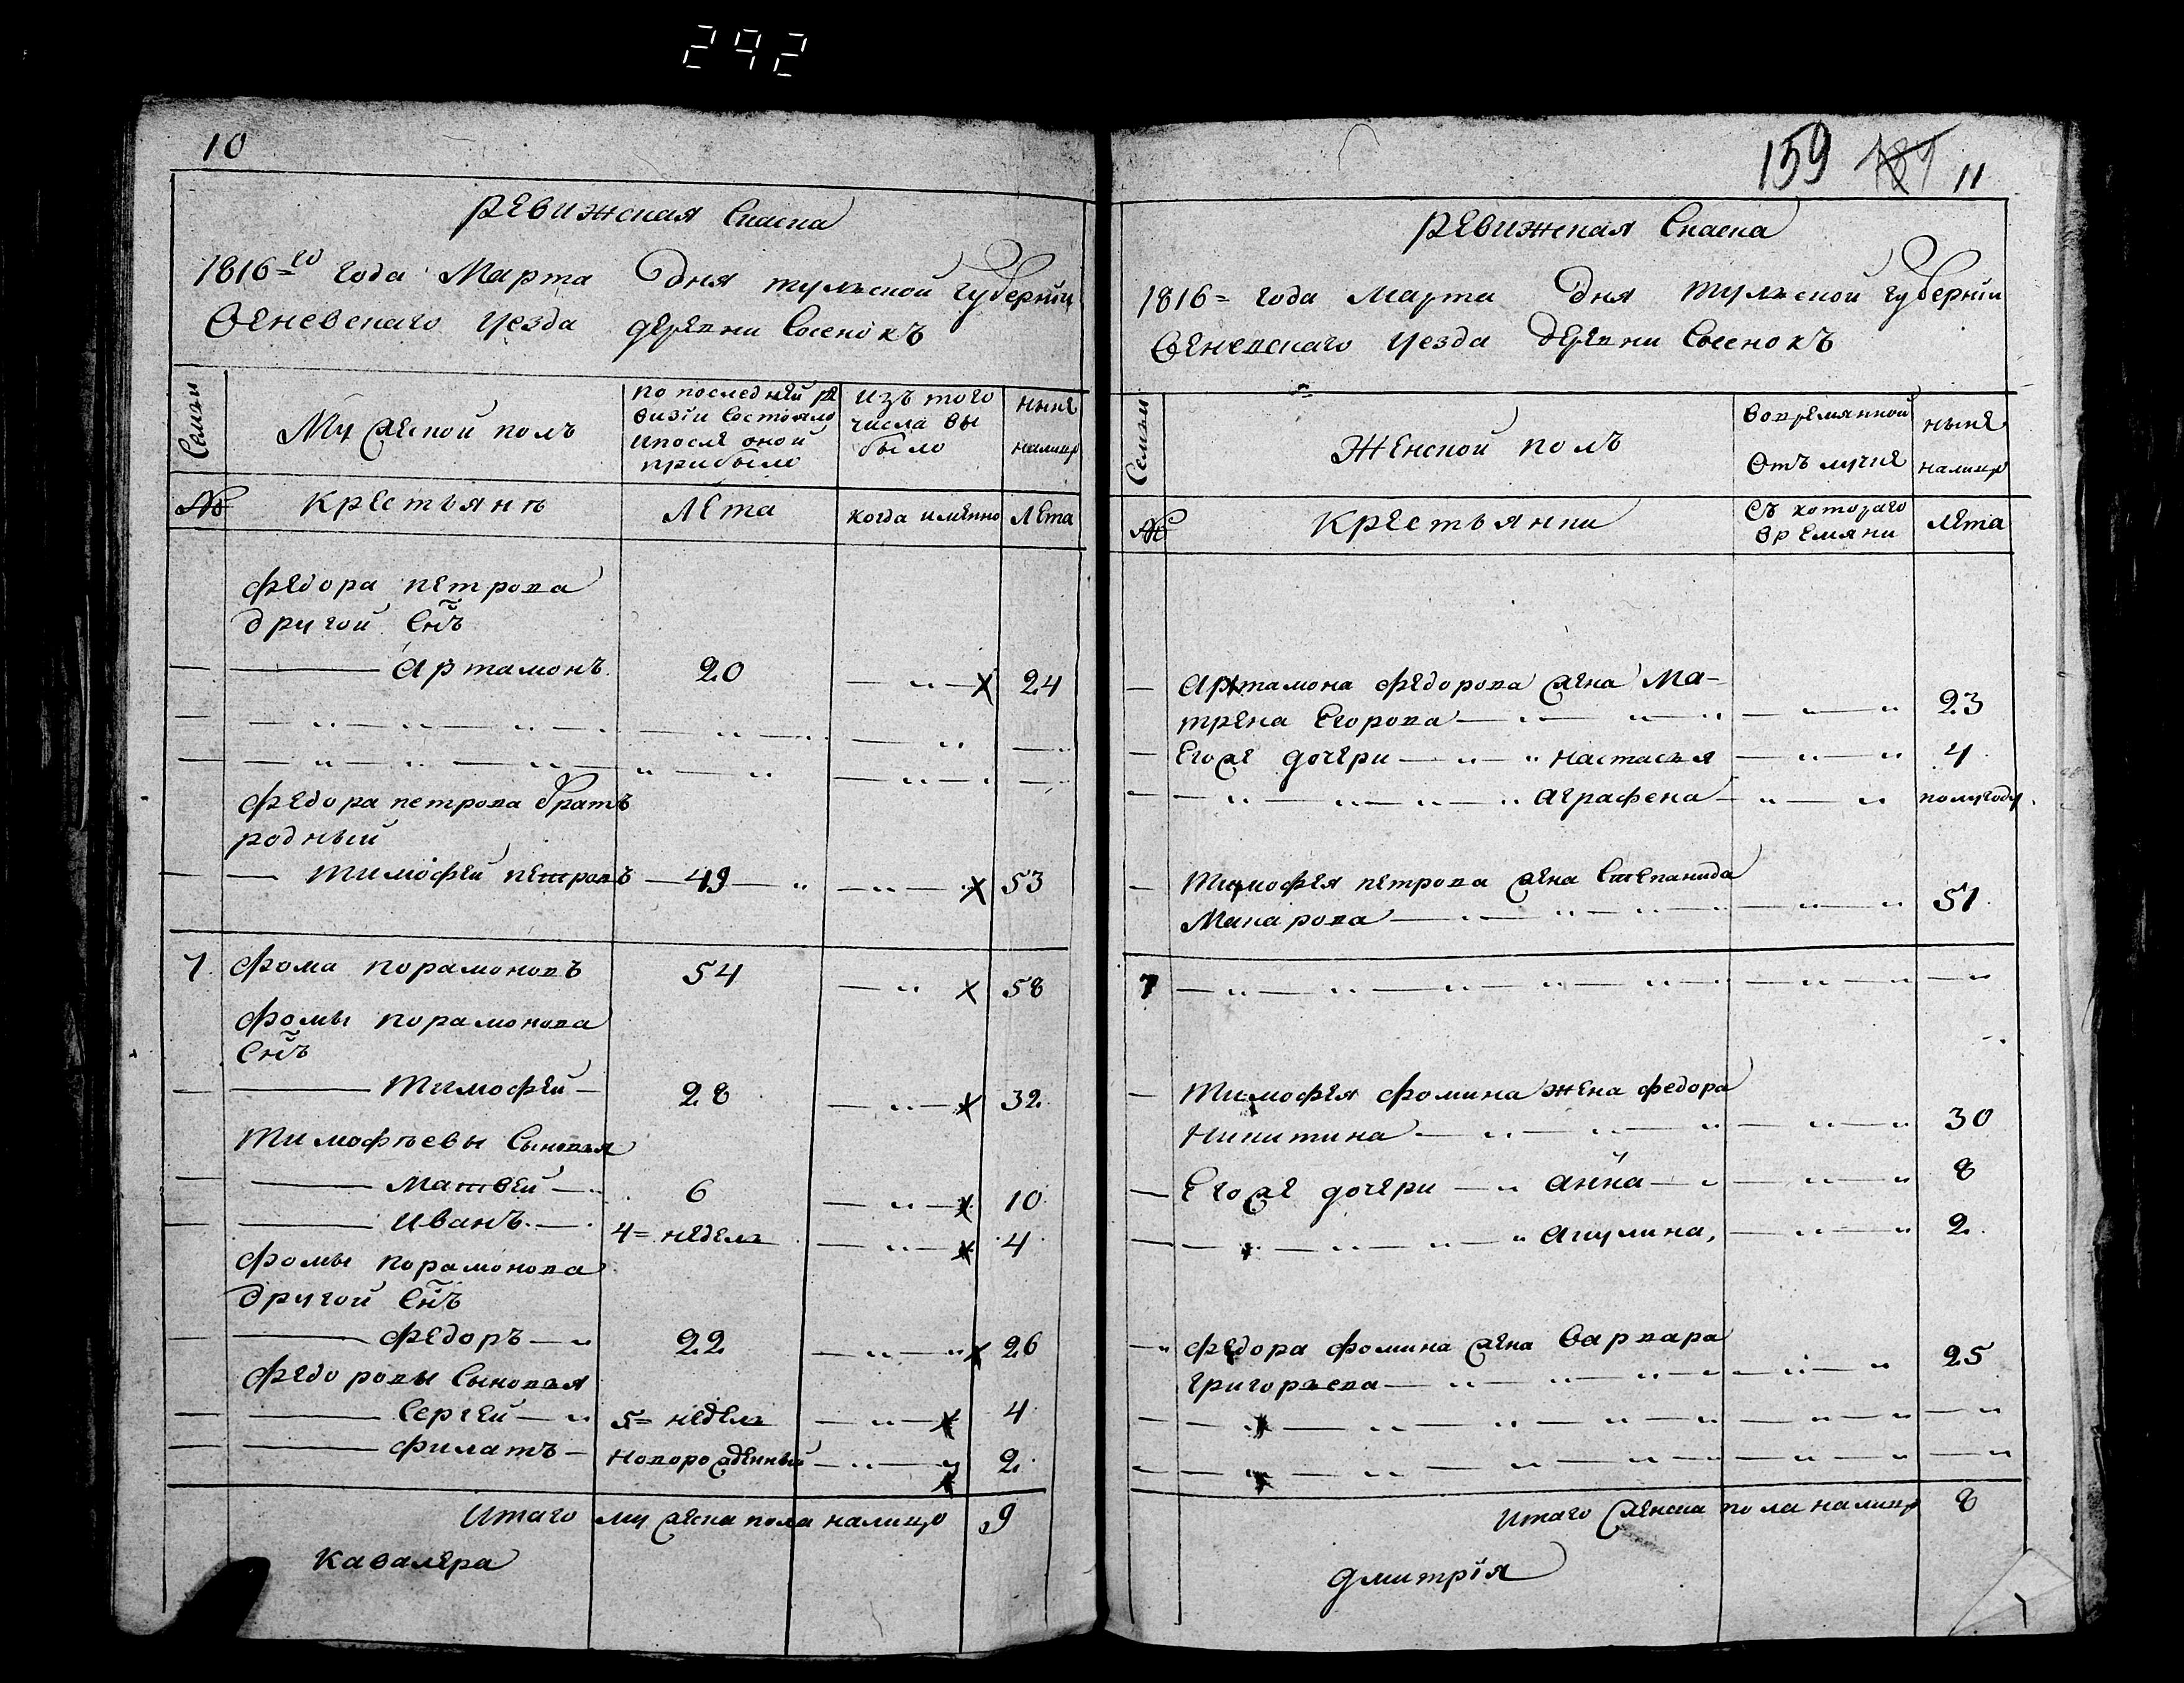 292
10
Ревижская Скаска
1816=го года Марта дня тульской Губернїи
Веневскаго уезда деревни Сосенокъ
Семьи
Мужеской полъ
по последней ре
визїи состояло
и после оной
прибыло
изъ того
числа вы
было
ныне
налицо
№
Крестьянъ
Лета
когда именно
Лета
Федора петрова
другой Снъ
Артамонъ 20 24
Федора петрова братъ
родный
Тимофей петровъ 49 53
7 Фома порамоновъ 54 58
Фомы порамонова
Снъ
Тимофей 28 32
Тимофъевы Сыновья
Матвей 6 10
Иванъ 4= недель 4
Фомы порамонова
другой Снъ
Федоръ 22 26
Федоровы Сыновья
Сергей 5= недель 4
Филатъ новорожденный 2
Итого мужеска пола налицо 9
Кавалера
159 11
Ревижская Скаска
1816= года Марта дня тульской Губернїи
Веневскаго уезда деревни Сосенокъ
Семьи
Женской полъ
во времянной
отълучке
ныне
налицо
№
Крестьянки
съ котораго
времяни
лета
Артамона федорова жена Ма-
трена Егорова 23
Егоже дочери Настасья 4
Аграфена полугоду
Тимофея петрова жена Степанида
Макарова 51
7
Тимофея фомина жена федора
Никитина 30
Егоже дочери Анна 8
Акулина, 2
Федора фомина жена Варвара
Григорьева 25
Итаго женска пола налицо 8
Дмитрїя